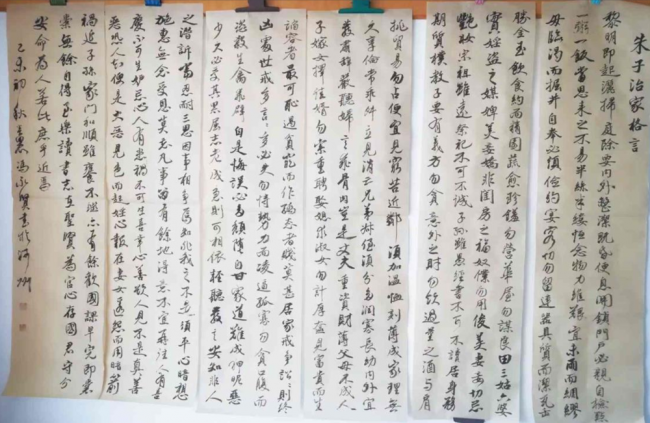 朱子治家格言
黎明即起灑掃庭除要內外整潔既昏便息關鎖門戶必親自檢點
一粥一飯當思來之不易半絲半縷恆念物力維艱宜未雨而綢繆
毋臨渴而掘井自奉必須儉約宴客切勿留連器具質而潔瓦缶
勝金玉飲食約而精園蔬愈珍饈勿營華屋勿謀良田三姑六婆
實淫盜之媒婢美妾嬌非閨房之福奴僕勿用俊美妻妾切忌
艷妝宗祖雖遠祭祀不可不誠子孫雖愚經書不可不讀居身務
期質樸教子要有義方勿貪意外之財勿飲過量之酒與肩
挑貿易勿占便宜見窮苦近鄰須加溫恤刻薄成家理無
久享倫常乖舛立見消亡兄弟叔侄須分多潤寡長幼內外宜
法肅辭嚴聽婦言乖骨肉豈是丈夫重資財薄父母不成人
子嫁女擇佳婿勿索重聘娶媳求淑女勿計厚奩見富貴而生
諂容者最可恥遇貧窮而作驕態者賤莫甚居家戒爭訟訟則終
凶處世戒多言言多必失勿恃勢力而凌逼孤寡勿貪口腹而
恣殺生禽乖僻自是悔誤必多頹惰自甘家道難成狎昵惡
少久必受其累屈志老成急則可相依輕聽發言安知非人
之譖訴當忍耐三思因事相爭焉知非我之不是須平心暗想
施惠無念受恩莫忘凡事當留有餘地得意不宜再往人有喜
慶不可生妒忌心人有禍患不可生喜幸心善欲人見不是真善
惡恐人知便是大惡見色而起淫心報在妻女匿怨而用暗箭
禍延子孫家門和順雖饔飧不繼亦有餘歡國課早完即囊
橐無餘自得至樂讀書志在聖賢為官心存國君守分
安命為人若此庶乎近焉
乙未初秋